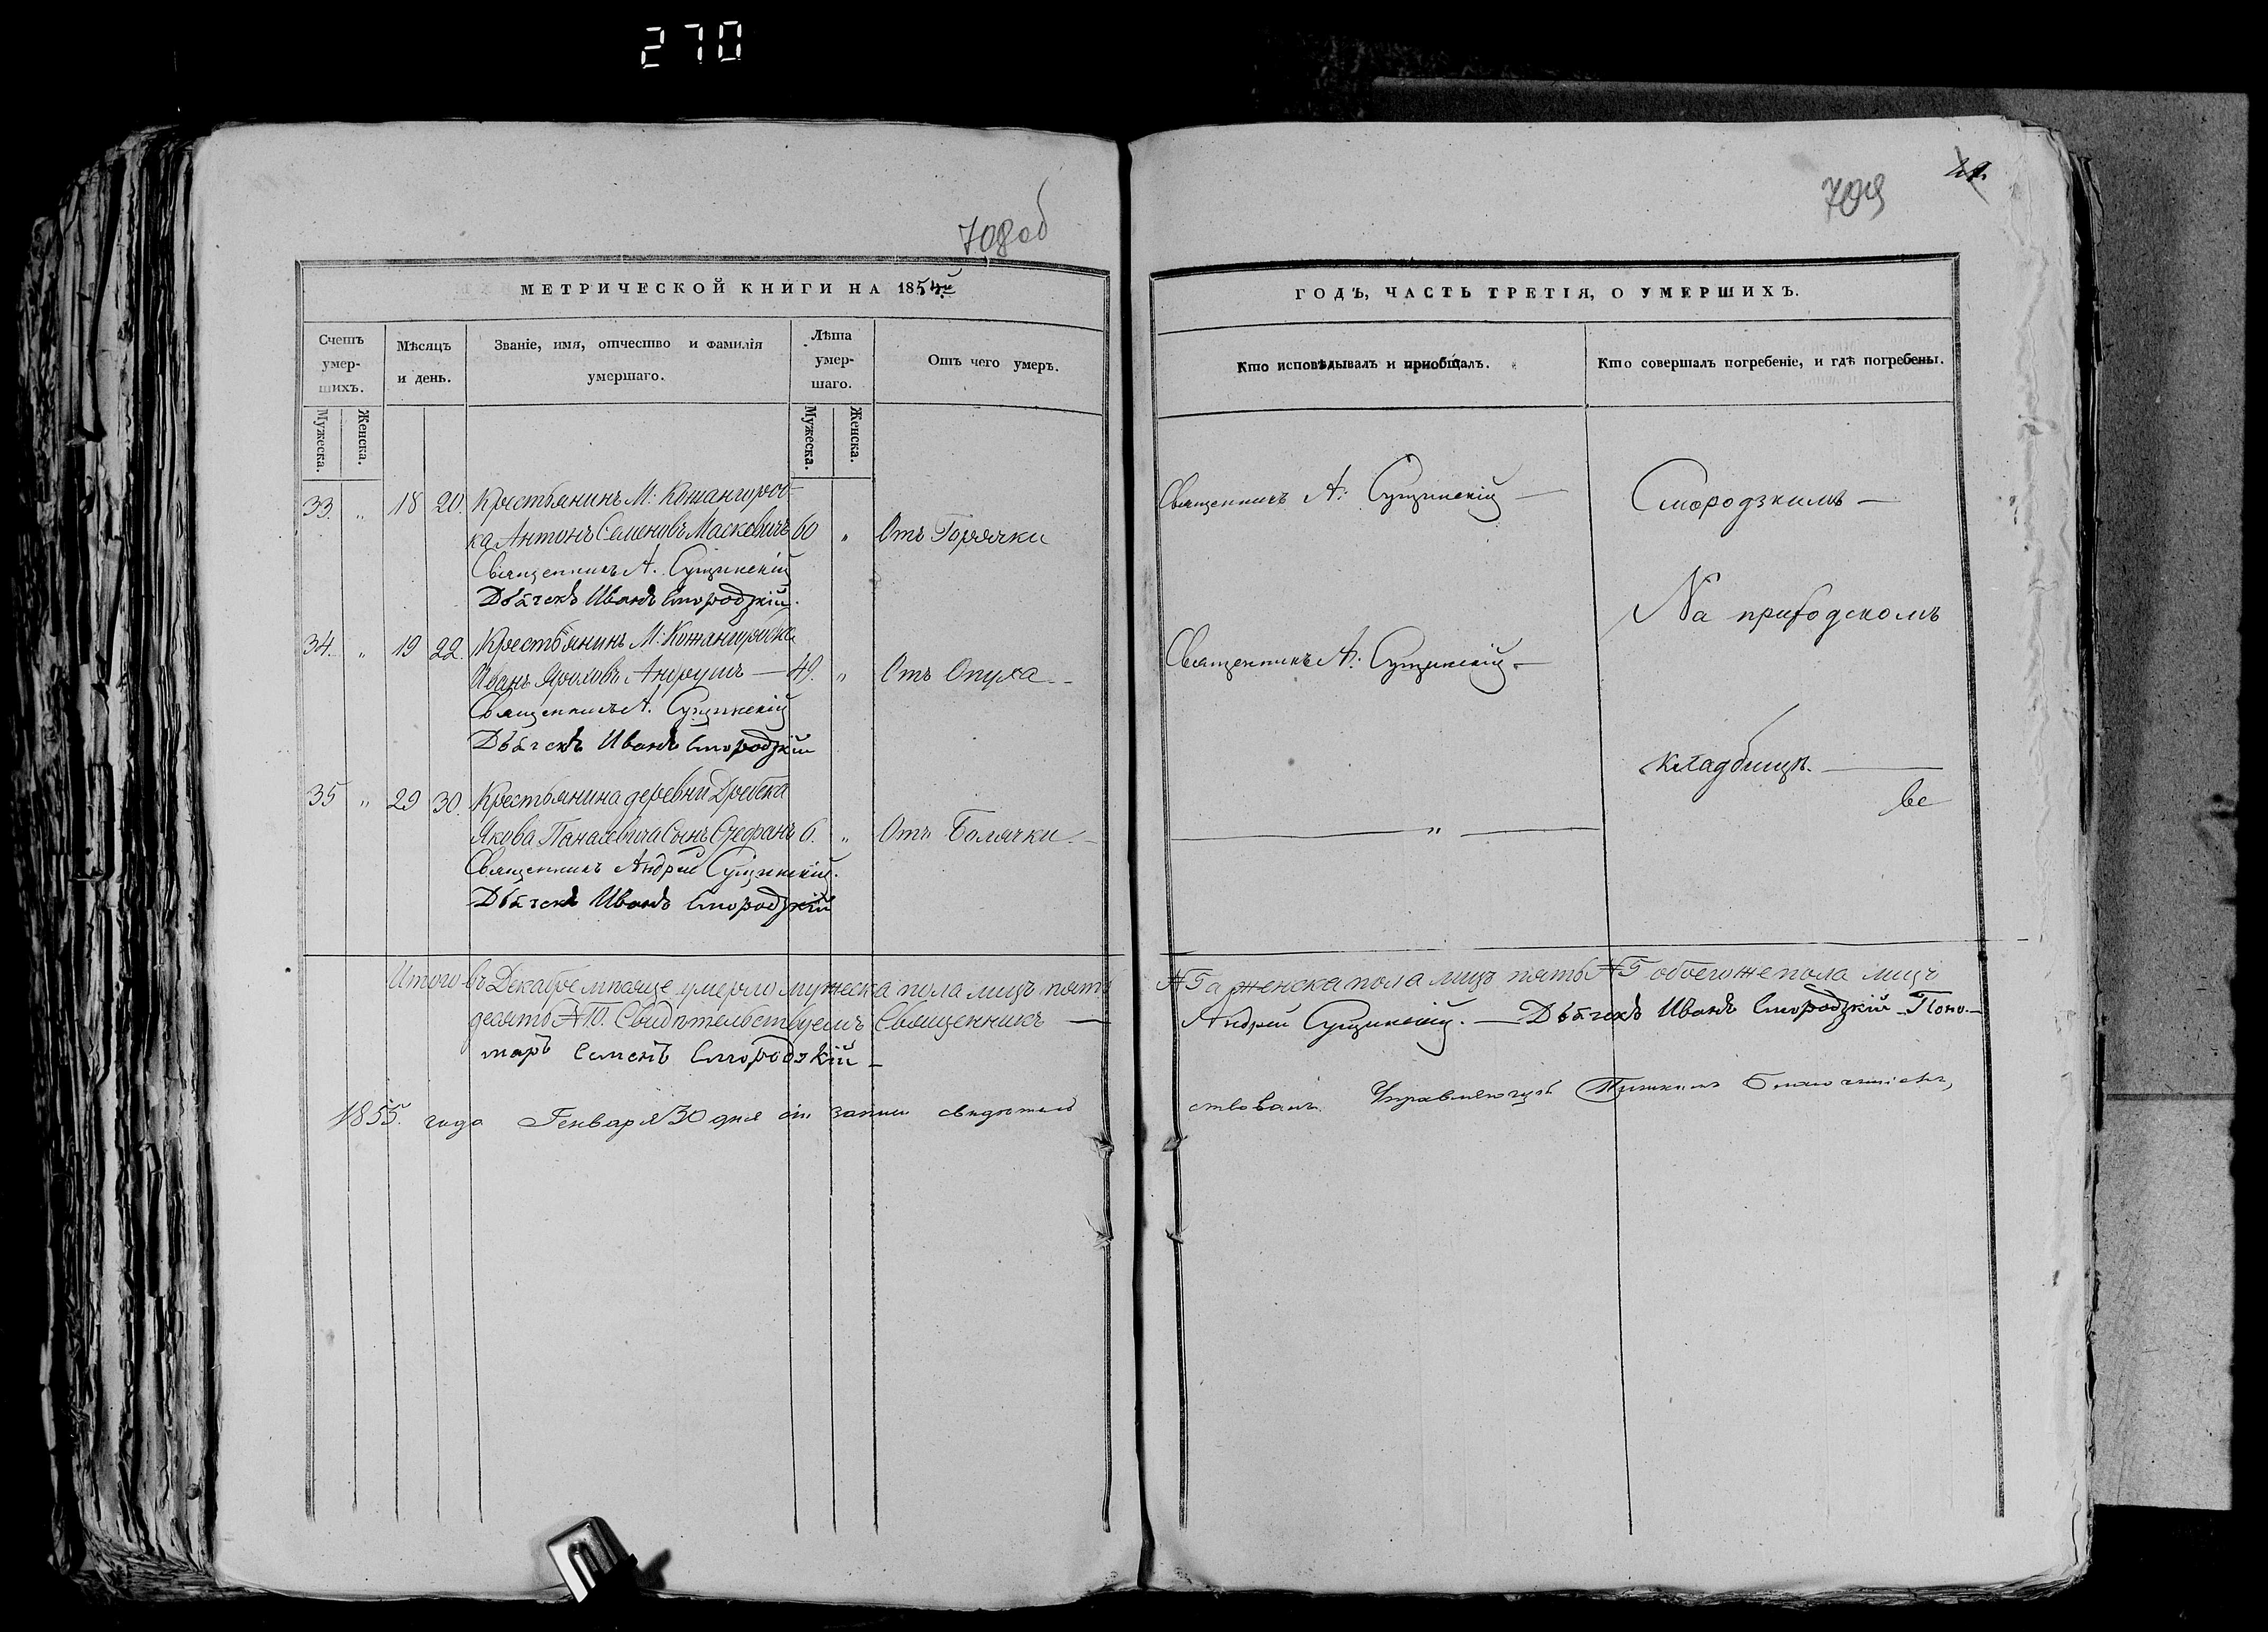 270
708об
МЕТРИЧЕСКОЙ КНИГИ НА 1854й
Счетъ умер- шихъ.
Мѣсяцъ и день.
Званіе, имя, отчество и фамилія умершаго.
Лѣта умер- шаго.
Отъ чего умеръ.
Мужеска. Женска. Мужеска. Женска.
33. „ 18 20. Крестьянинъ М: Кожангород-
ка Антонъ Семеновъ Масковичъ 60 „ Отъ Горячки
Священникъ А. Сущинскій
Дьячекъ Иванъ Смородзкій.
34. „ 19 22. Крестьянинъ М: Кожангородка
Иванъ 49. „ Отъ Опуха
Священникъ А. Сущинскій
Дьячекъ Иванъ Смородзкій
35 „ 29 30. Крестьянина деревни Дребска
Якова Сынъ Стефанъ 6. „ Отъ Болячки.
Священникъ Андрей Сущинскій.
Дьячекъ Иванъ Смородзкій
Итого въ Декабре мѣсяце умерло мужеска пола лицъ пять
десять Свидѣтельствуемъ Священникъ
марь Семенъ Смородзкій
1855. года Генваря 30 дня сіи записи свидѣтель
709
ГОДЪ, ЧАСТЬ ТРЕТІЯ, О УМЕРШИХЪ.
Кто исповѣдывалъ и приобщалъ.
Кто совершалъ погребеніе, и гдѣ погребены.
Священникъ А: Сущинскій — Смородзкимъ —
На приходскомъ
Священникъ А: Сущинскій —
кладбищѣ.
— „ —
женска пола лицъ пять обоего же пола лицъ
Андрей Сущинскій. — Дьячекъ Иванъ Смородзкій — Поно-
ствовалъ Управляющій